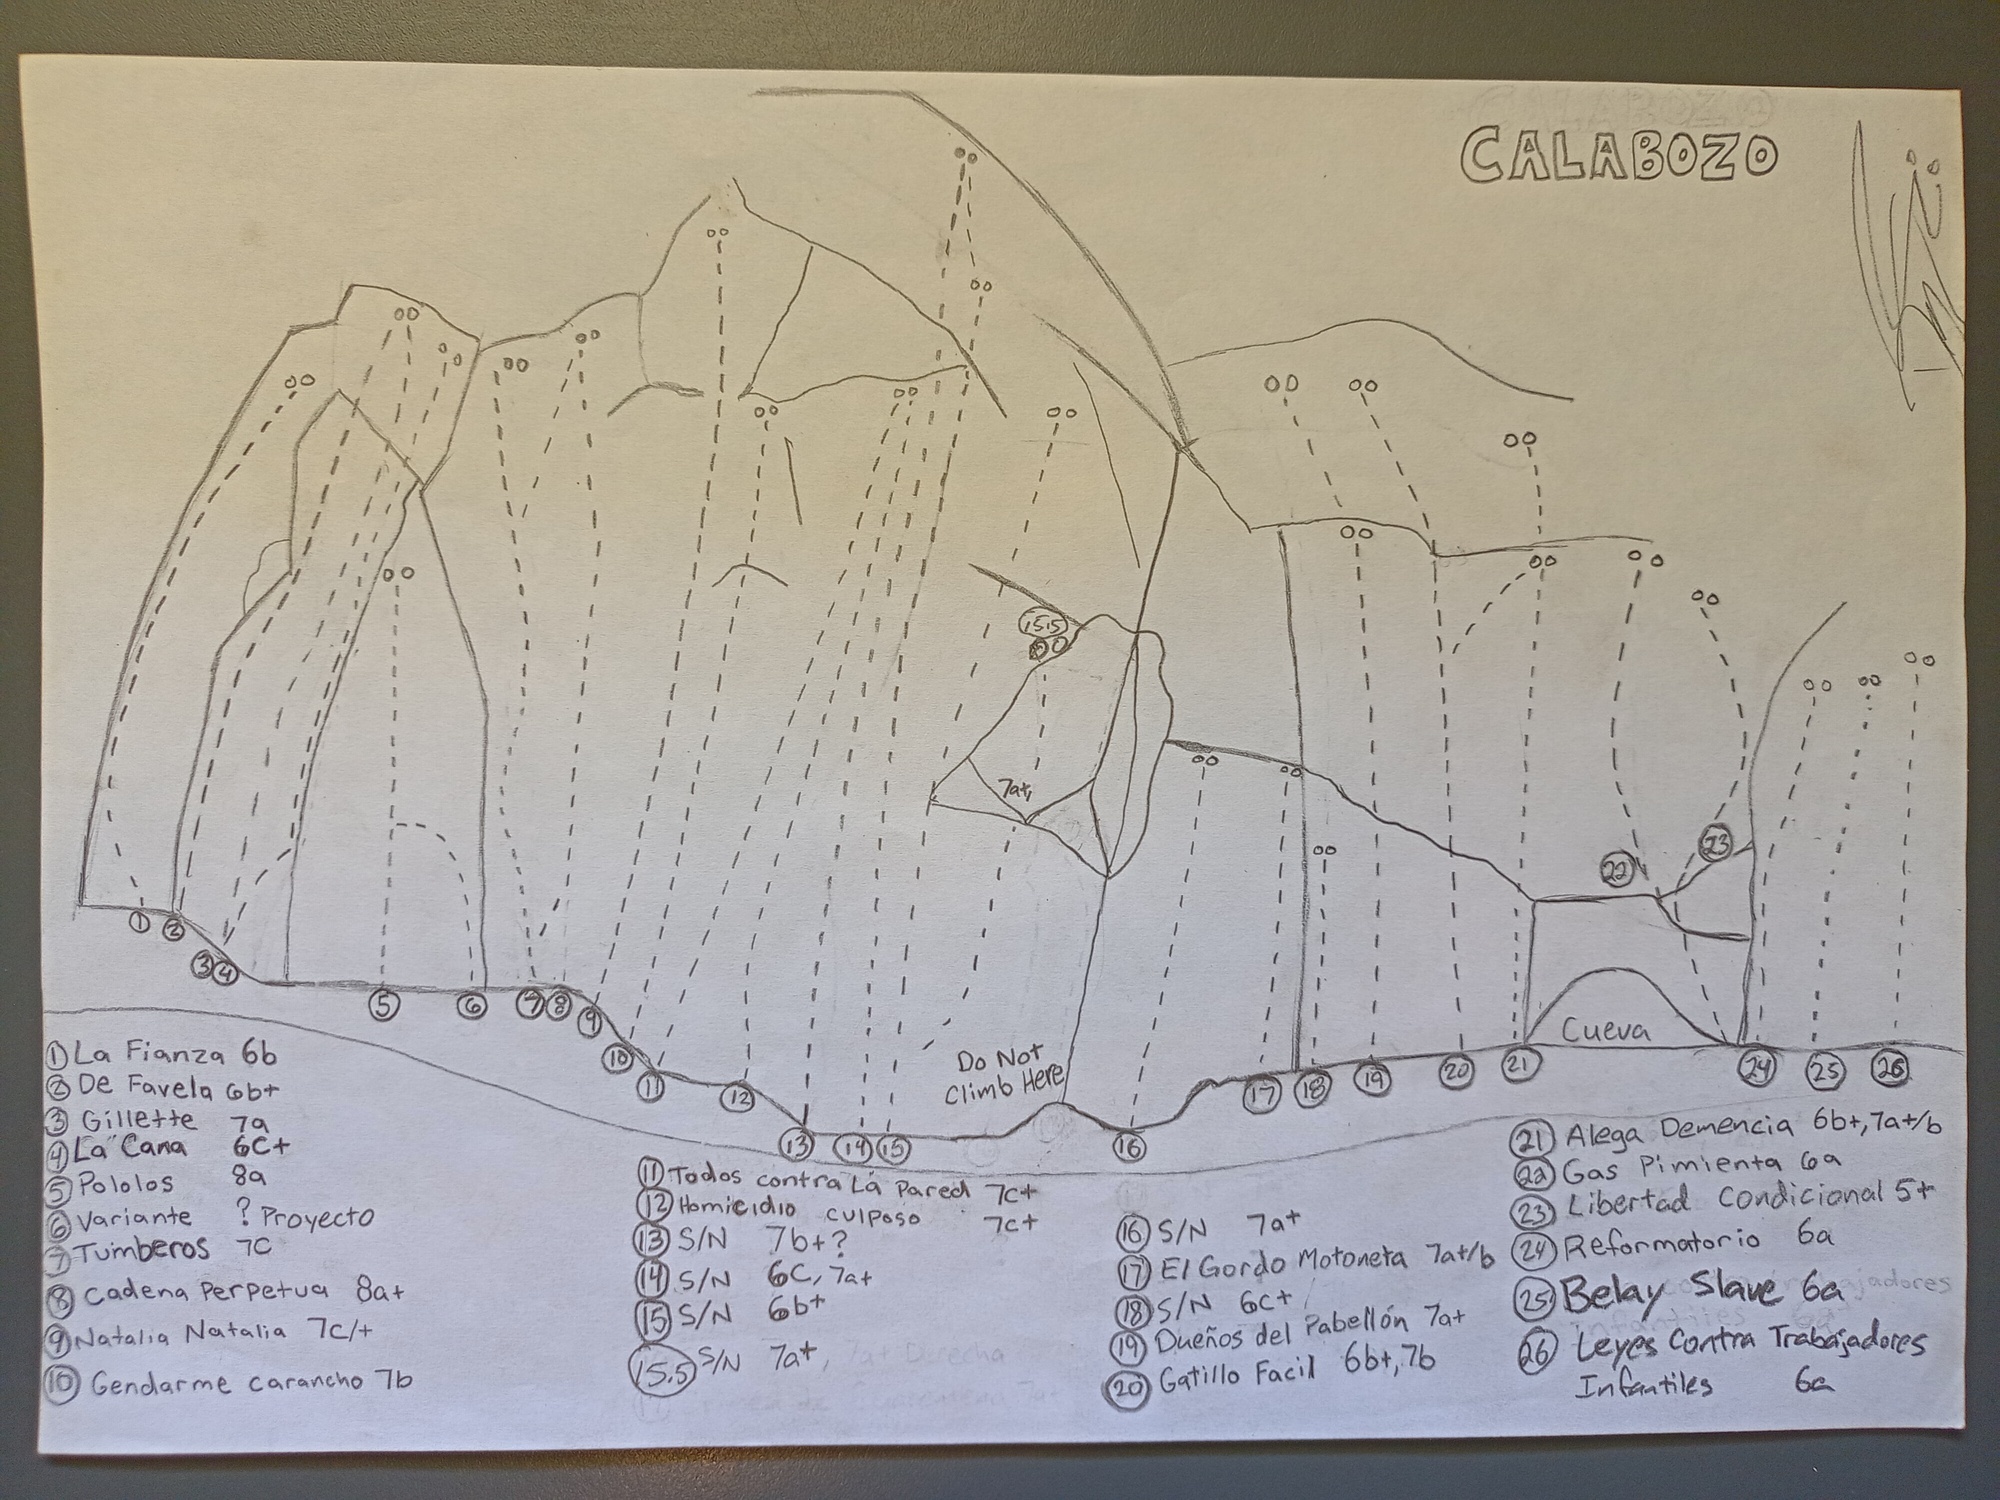 CALABOZO
15.5
7a+
22
23
1
2
3 4
5
6
7 8
9
10
11
12
13
14
15
16
17
18
19
20
21
24
25
26
Do Not
Climb Here
Cueva
1 La Fianza 6b
2 De Favela 6b+
3 Gillette 7a
4 La Cana 6c+
5 Pololos 8a
6 Variante ? Proyecto
7 Tumberos 7c
8 Cadena Perpetua 8a+
9 Natalia Natalia 7c/+
10 Gendarme carancho 7b
11 Todos contra La Pared 7c+
12 Homicidio culposo 7c+
13 S/N 7b+?
14 S/N 6c, 7a+
15 S/N 6b+
15.5 S/N 7a+,
16 S/N 7a+
17 El Gordo Motoneta 7a+/b
18 S/N 6c+
19 Dueños del Pabellón 7a+
20 Gatillo Facil 6b+, 7b
21 Alega Demencia 6b+, 7a+/b
22 Gas Pimienta 6a
23 Libertad Condicional 5+
24 Reformatorio 6a
25 Belay Slave 6a
26 Leyes Contra Trabajadores
Infantiles 6a